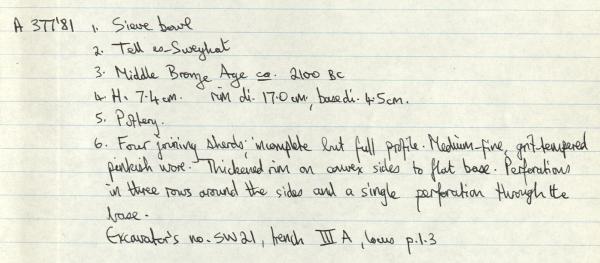 A 377'81 1. Sieve bowl
2. Tell es-Sweyhat
3. Middle Bronze Age ca. 2100 BC
4. H. 7.4cm. rim di. 17.0cm, base di. 4.5cm.
5. Pottery.
6. Four joining sherds; incomplete but full profile. Medium-fine, grit-tempered
pinkish ware. Thickened rim on convex sides to flat base. Perforations
in three rows around the sides and a single perforation through the
base.
Excavator's no. SW21, trench III A, locus p.1.3